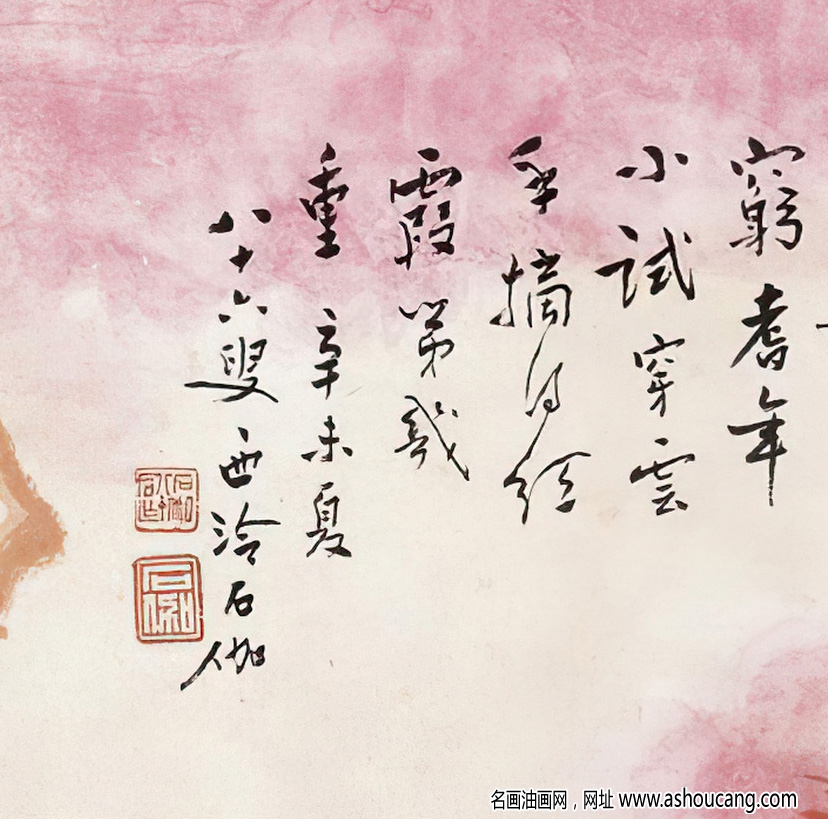 窮耆年
小試穿雲
手摘得絳
霞第幾
重 辛未夏
八十六叟西泠石伽
石伽
名画油画网，网址 www.ashoucang.com